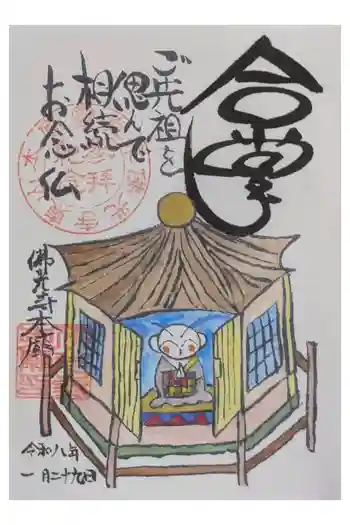 合掌
ご先祖を
偲んで
相続
お念仏
参拝
佛光寺本廟
令和八年
一月二十九日